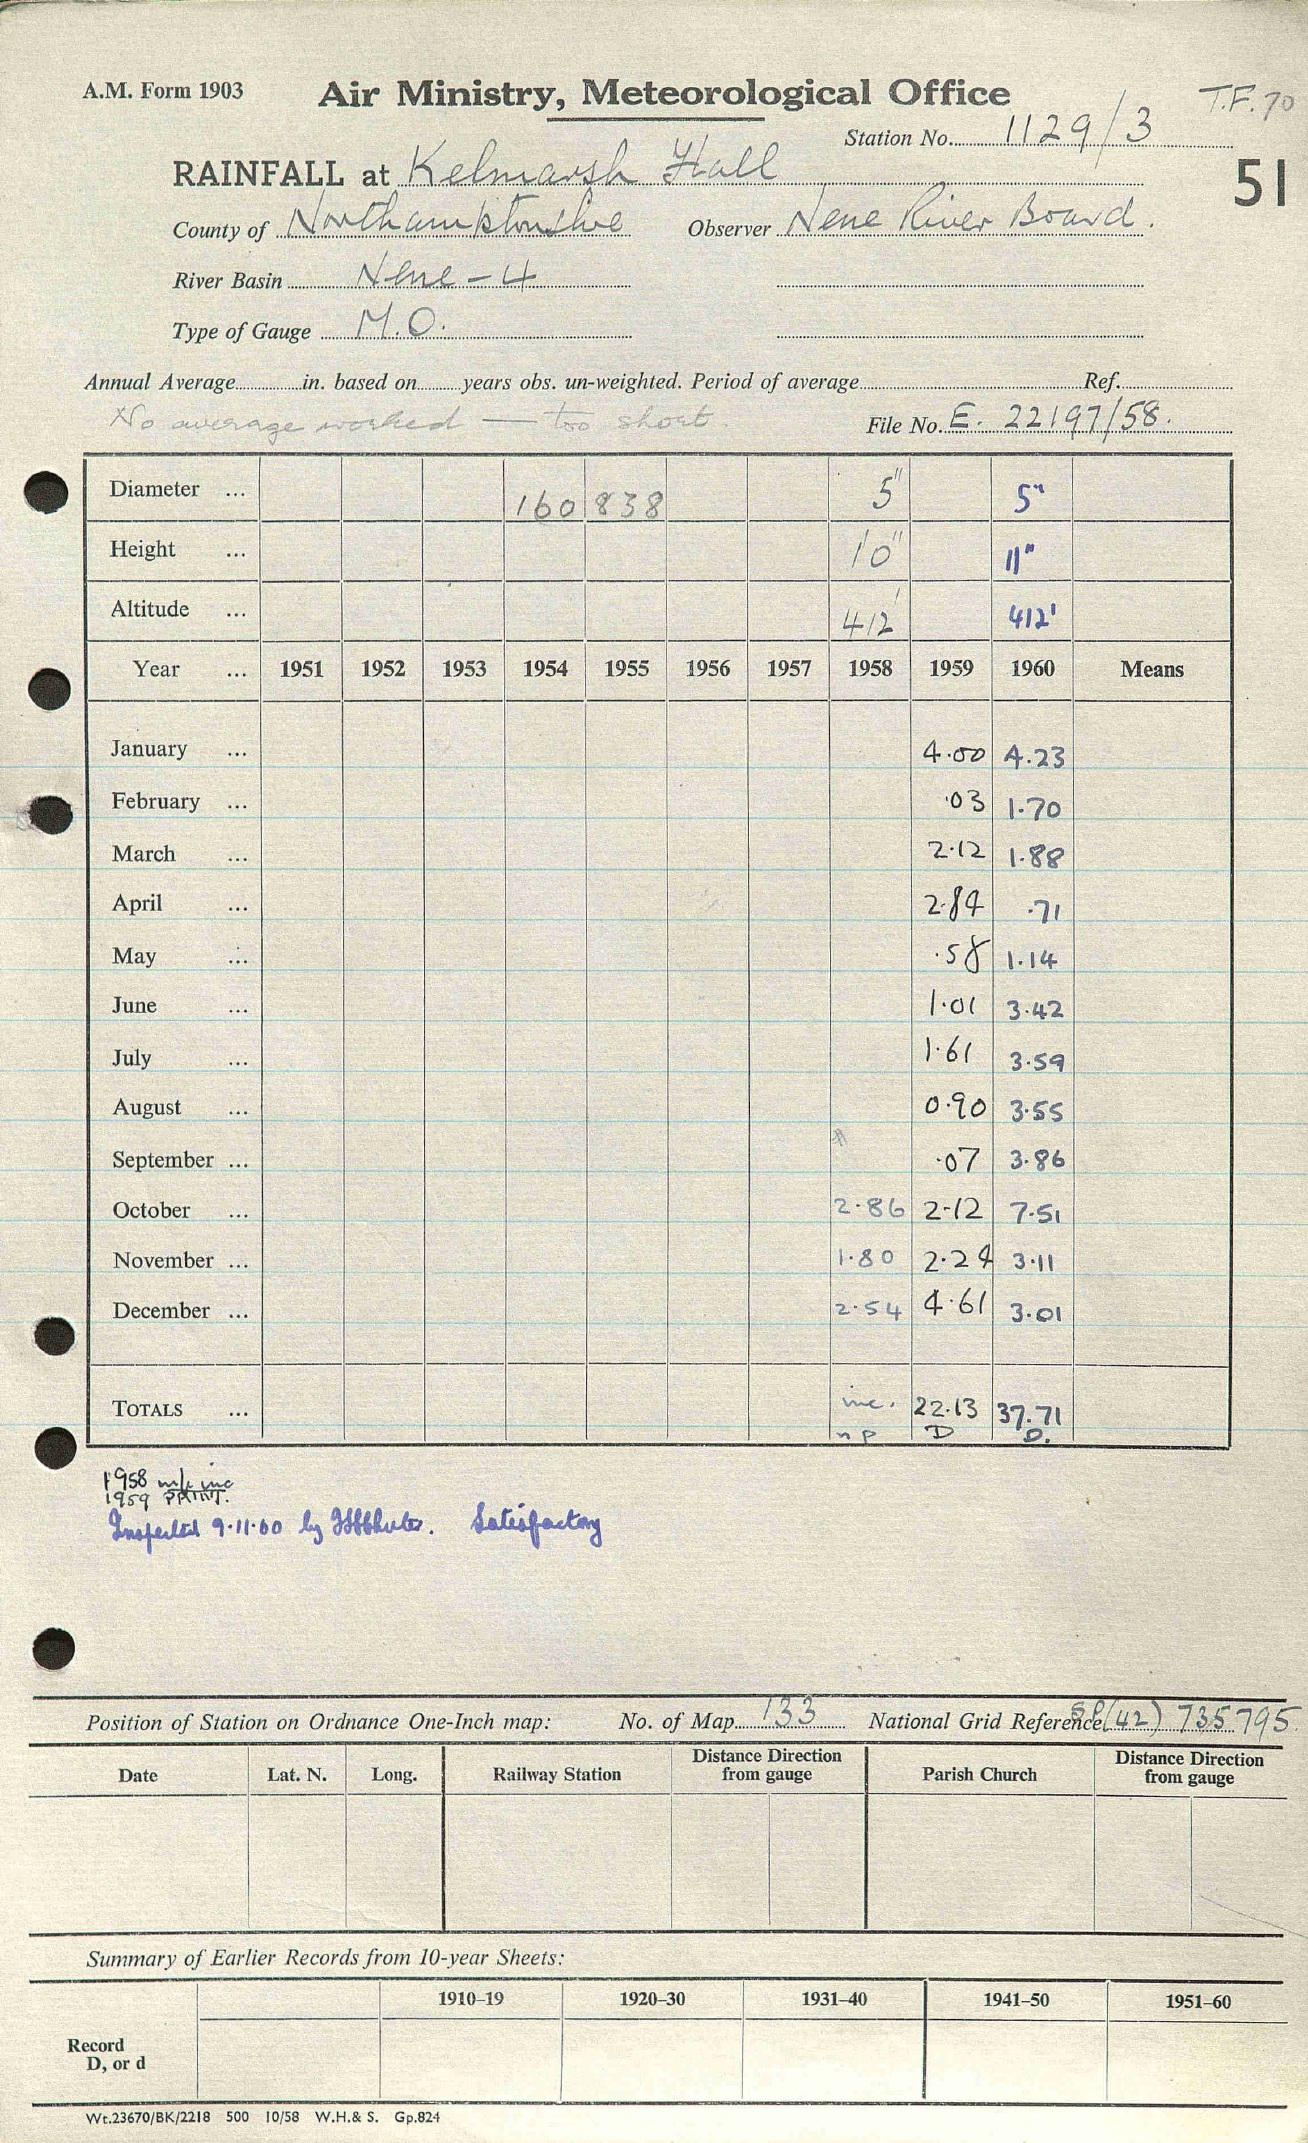 A.M. Form 1903 Air Ministry, Meteorological Office T.F. 70
Station No. 1129/3
RAINFALL at Kelmarsh Hall 51
County of Northamptonshire Observer Nene River Board.
River Basin Nene-4
Type of Gauge M.O.
Annual Average in. based on years obs. un-weighted. Period of average Ref.
No average worked — too short. File No. E. 22197/58.
Diameter ... 160 838 5" 5"
Height ... 10" 11"
Altitude ... 412' 412'
Year ... 1951 1952 1953 1954 1955 1956 1957 1958 1959 1960 Means
January ... 4.00 4.23
February ... .03 1.70
March ... 2.12 1.88
April ... 2.84 .71
May ... .58 1.14
June ... 1.01 3.42
July ... 1.61 3.59
August ... 0.90 3.55
September ... .07 3.86
October ... 2.86 2.12 7.51
November ... 1.80 2.24 3.11
December ... 2.54 4.61 3.01
TOTALS ... inc. 22.13 37.71
np D D.
1958 inc
1959 PRINT.
Inspected 9.11.60 by Satisfactory
Position of Station on Ordnance One-Inch map: No. of Map 133 National Grid Reference SP(42) 735795
Date Lat. N. Long. Railway Station Distance Direction from gauge Parish Church Distance Direction from gauge
Summary of Earlier Records from 10-year Sheets:
1910–19 1920–30 1931–40 1941–50 1951–60
Record
D, or d
Wt.23670/BK/2218 500 10/58 W.H.& S. Gp.824